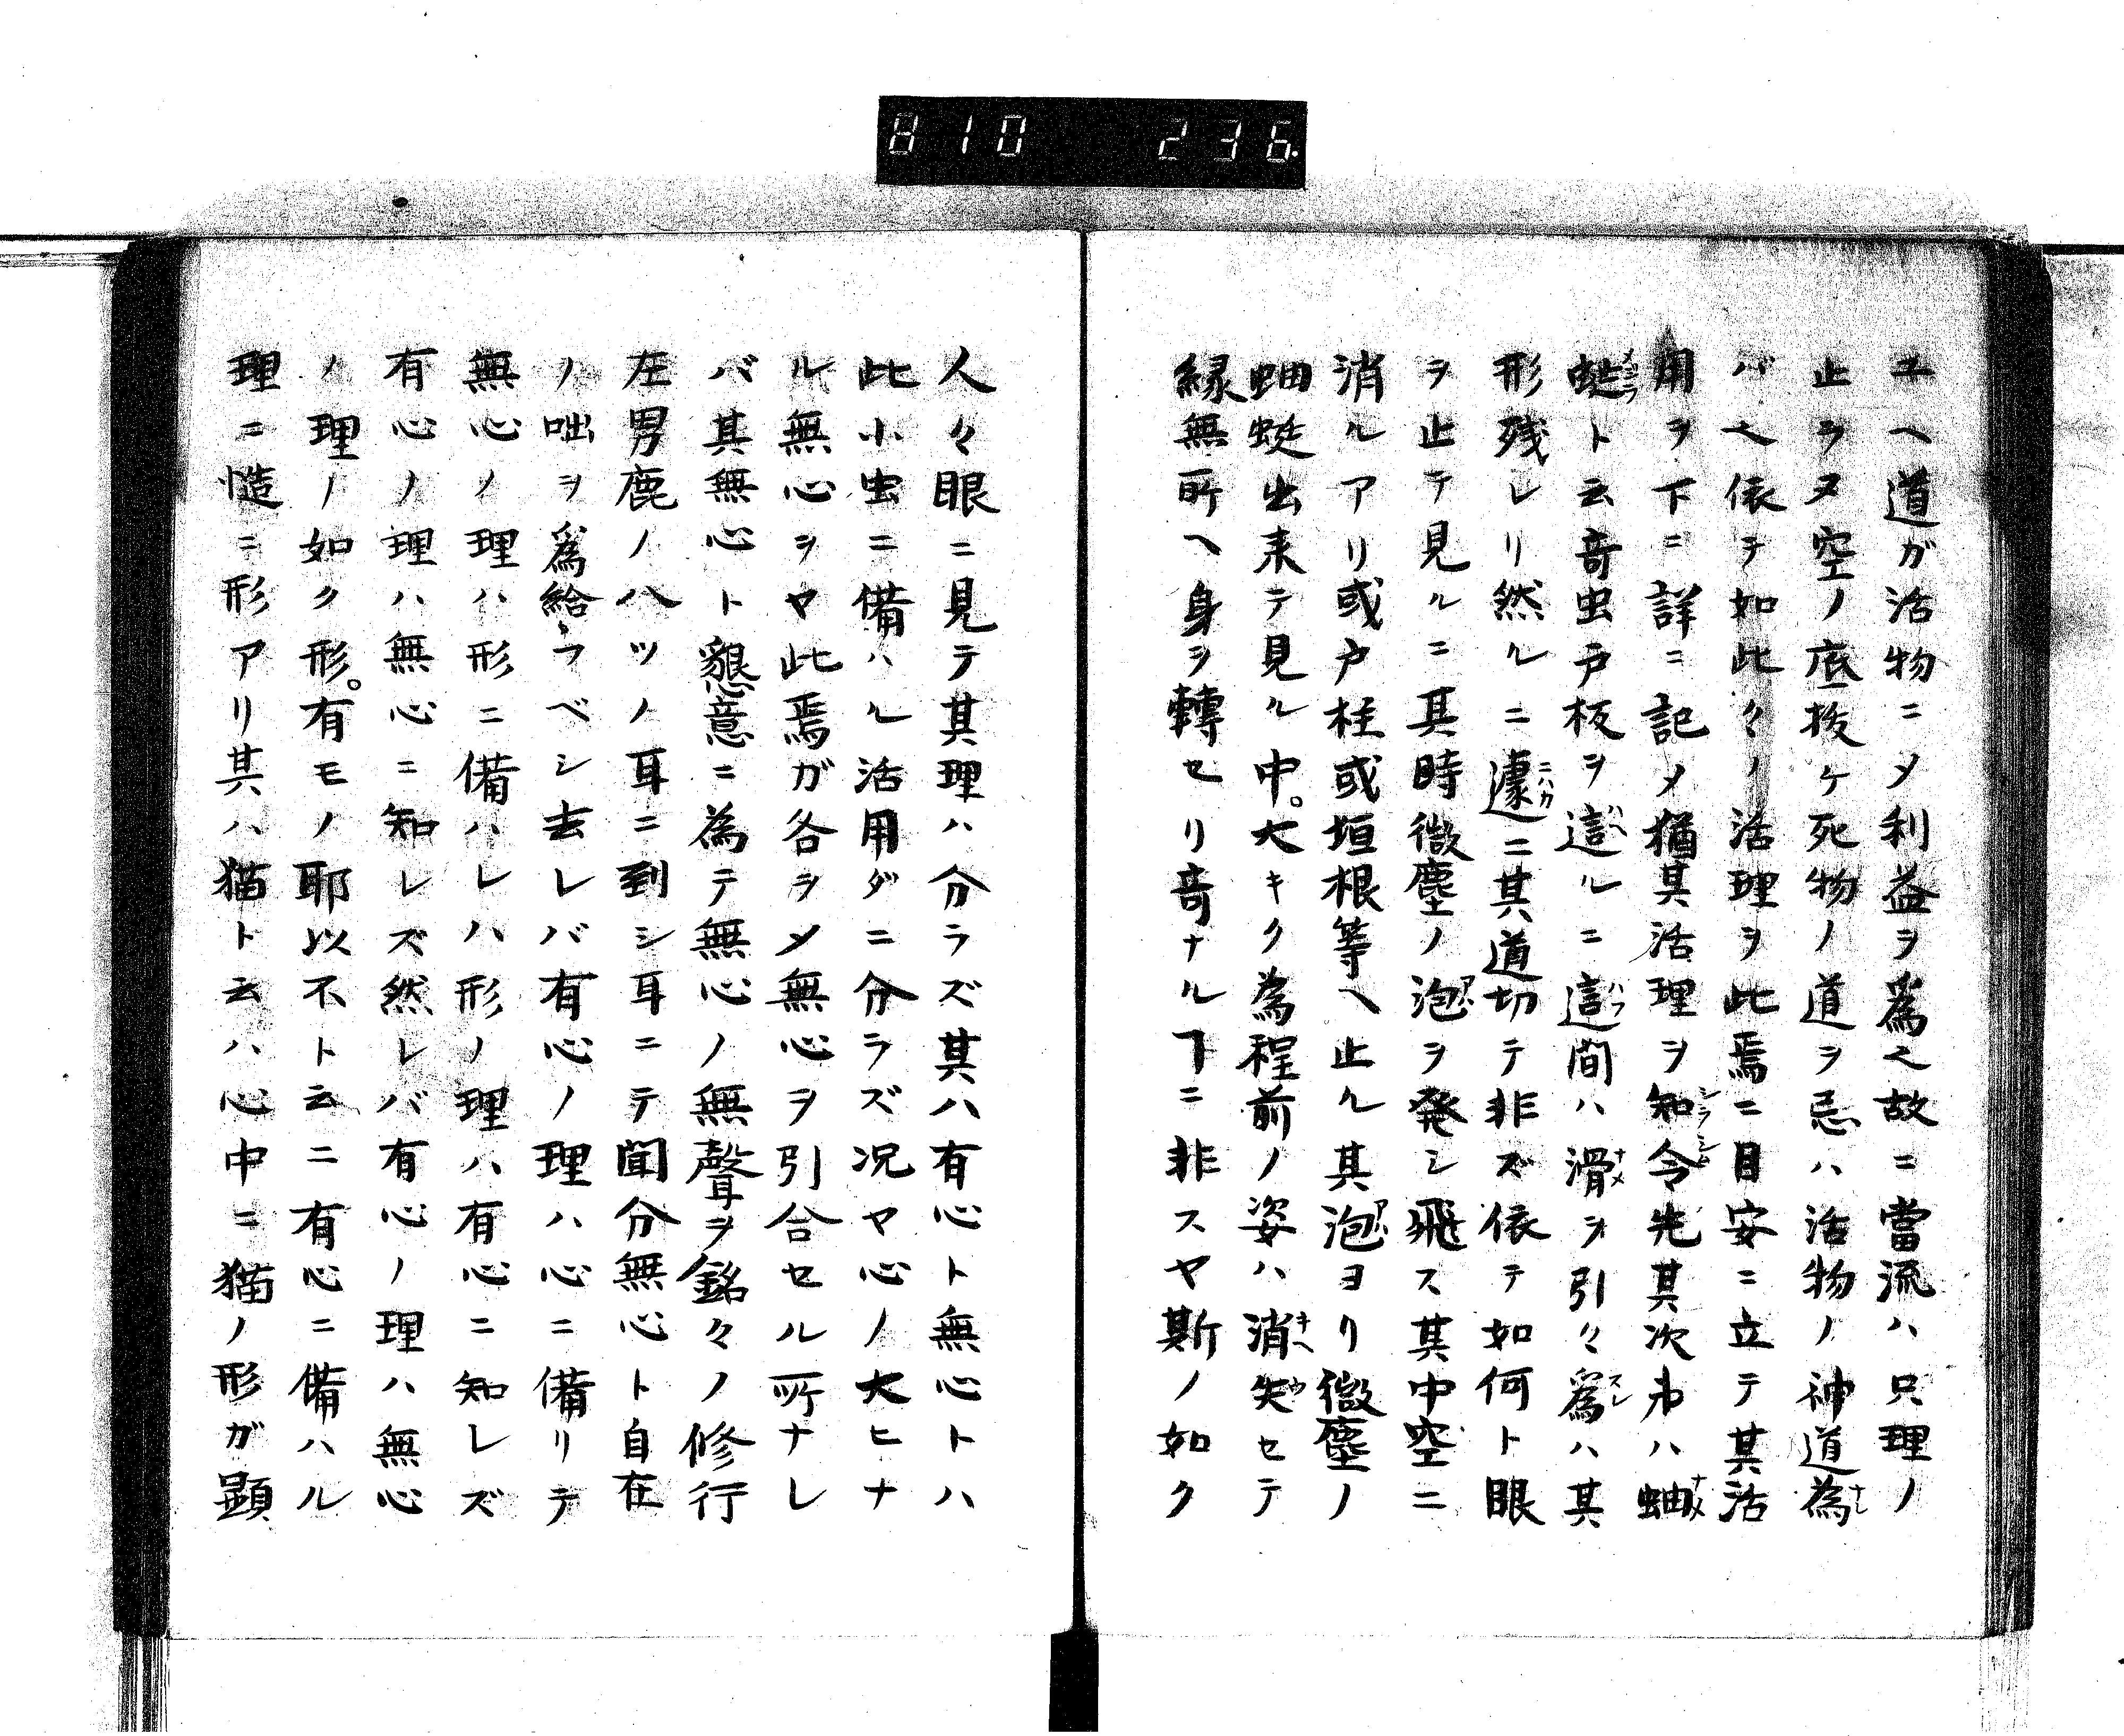 810 236.
ユヘ道ガ活物ニメ利益ヲ爲ス故ニ當流ハ只理ノ
止ヲヌ空ノ底抜ケ死物ノ道ヲ忌ハ活物ノ神道為
バ也依テ如此クノ活理ヲ此焉ニ目安ニ立テ其活
用ヲ下ニ詳ニ記メ猶其活理ヲ知令先其次㐧ハ蚰
蜒ト云竒虫戸板ヲ這ルニ這間ハ滑ヲ引々爲ハ其
形残レリ然ルニ遽ニ其道切テ非ズ依テ如何ト眼
ヲ止テ見ルニ其時微塵ノ泡ヲ発シ飛ス其中空ニ
消ルアリ或戸柱或垣根等ヘ止ル其泡ヨリ微塵ノ
蚰蜒出来テ見ル中。大キク為程前ノ姿ハ消失セテ
縁無所ヘ身ヲ轉セリ竒ナルヿニ非スヤ斯ノ如ク
人々眼ニ見テ其理ハ分ラズ其ハ有心ト無心トハ
此小虫ニ備ハル活用ダニ分ラズ况ヤ心ノ大ヒナ
ル無心ヲヤ此焉ガ各ヲメ無心ヲ引合セル所ナレ
バ其無心ト懇意ニ為テ無心ノ無聲ヲ銘々ノ修行
左男鹿ノ八ツノ耳ニ到シ耳ニテ聞分無心ト自在
ノ咄ヲ爲給フベシ去レバ有心ノ理ハ心ニ備リテ
無心ノ理ハ形ニ備ハレハ形ノ理ハ有心ニ知レズ
有心ノ理ハ無心ニ知レズ然レバ有心ノ理ハ無心
ノ理ノ如ク形。有モノ耶以不ト云ニ有心ニ備ハル
理ニ慥ニ形アリ其ハ猫ト云ハ心中ニ猫ノ形ガ顕